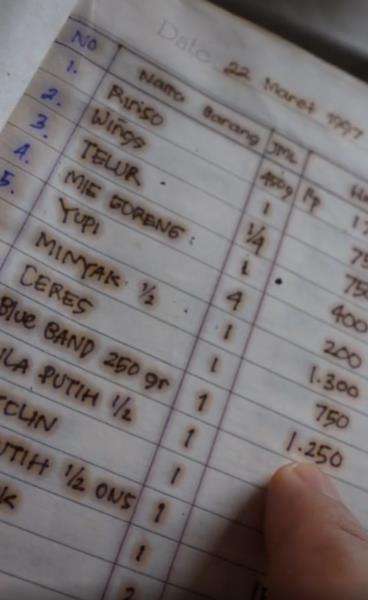 Date 22 Maret 1997
No Nama Barang JML
1. Rinso 450g Rp 17
2. Wings 1 75
3. TELUR 1/4 750
4. MIE GORENG : 1 400
5. YUPI 4 200
MINYAK 1/2 1 1.300
CERES 1 750
Blue BAND 250 gr 1 1.250
ULA PUTIH 1/2 1
CLIN 1
UTIH 1/2 ONS 1
K 1
2